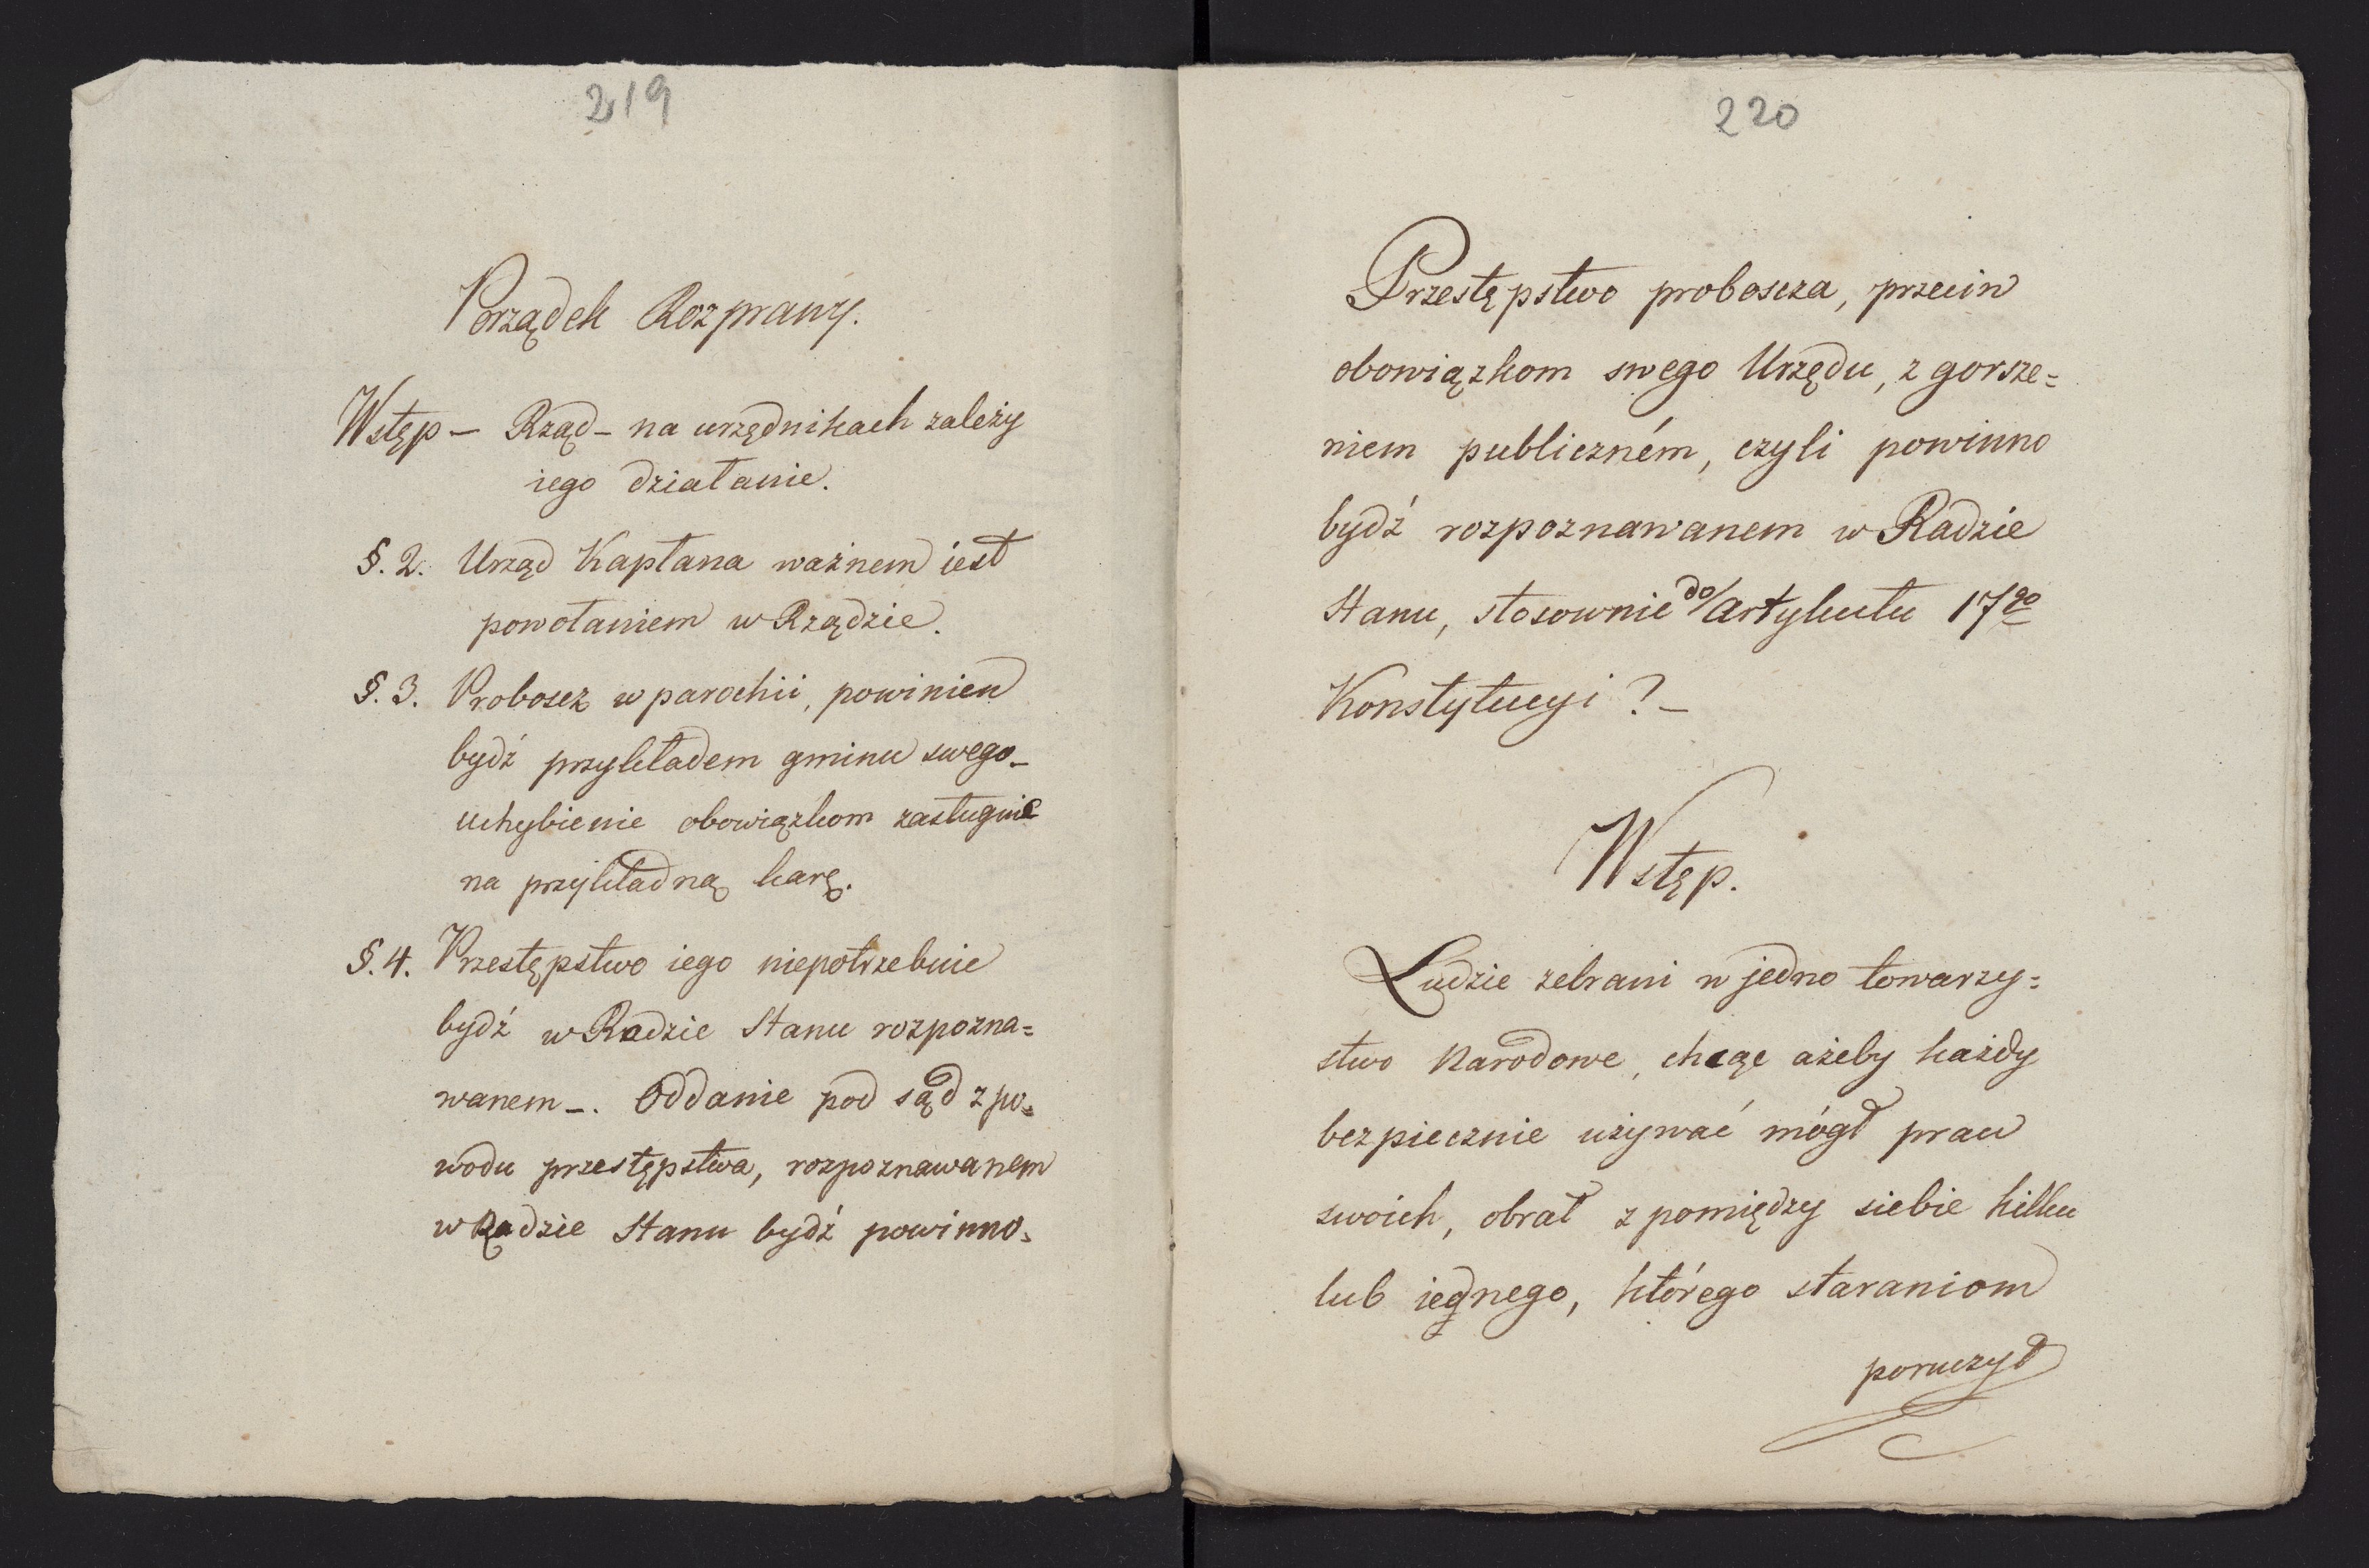 219
Porządek Rozprawy.
Wstęp — Rząd — na urzędnikach zależy
iego działanie.
§. 2. Urząd Kapłana ważnem iest
powołaniem w Rządzie.
§. 3. Proboscz w parochii, powinien
bydź przykładem gminu swego —
uchybienie obowiązkom zasługuie
na przykładną karę.
§. 4. Przestępstwo iego niepotrzebnie
bydź w Radzie Stanu rozpozna=
wanem —. Oddanie pod sąd z po=
wodu przestępstwa, rozpoznawanem
w Radzie Stanu bydź powinno.
220
Przestępstwo proboscza, przeciw
obowiązkom swego Urzędu, z gorsze=
niem publiczném, czyli powinno
bydź rozpoznawanem w Radzie
Stanu, stosownie do Artykułu 17go
Konstytucyi ? —
Wstęp.
Ludzie zebrani w jedno towarzy=
stwo Narodowe, chcąc ażeby każdy
bezpiecznie używać mógł praw
swoich, obrał z pomiędzy siebie kilku
lub iednego, którego staraniom
poruczył